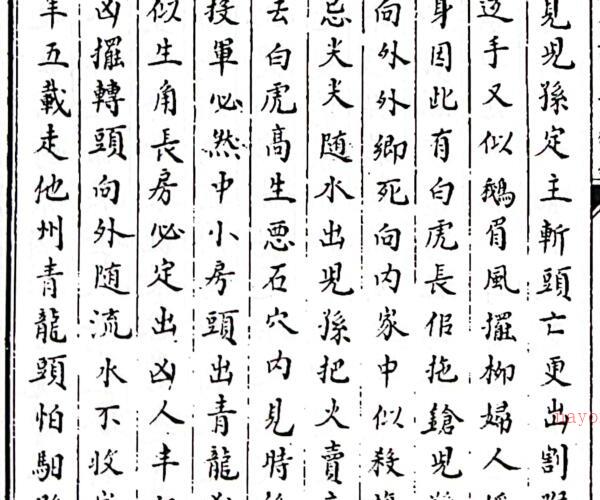 見児孫定主斬頭亡更出割
手又似鵝眉風擺柳婦人
身因此有白虎長但拖鎗児
向外外卿死向内家中似殺
忌尖尖随水出児孫把火賣
去白虎高生悪石穴内見時
投軍必然中小房頭出青龍
似生角長房必定出凶人丰
凶擺轉頭向外随流水不收
年五載走他州青龍頭怕
nayo